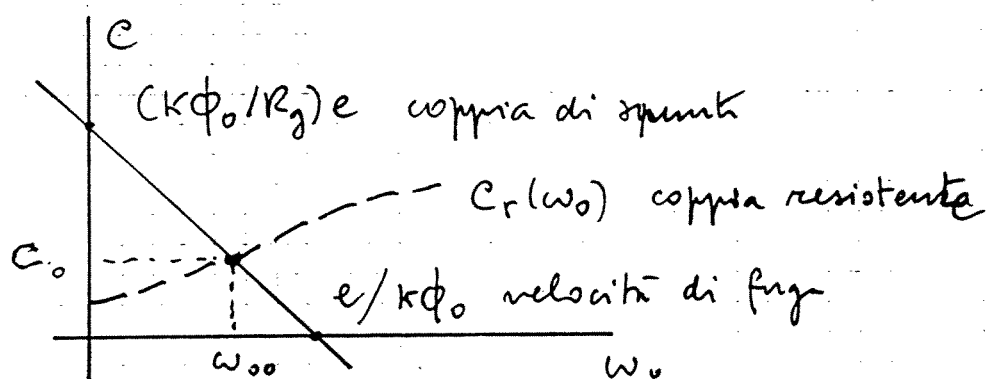 C
(κϕ₀/R_g) e coppia di spunto
C_r(ω₀) coppia resistente
C₀
e/κϕ₀ velocità di fuga
ω₀₀
ω₀